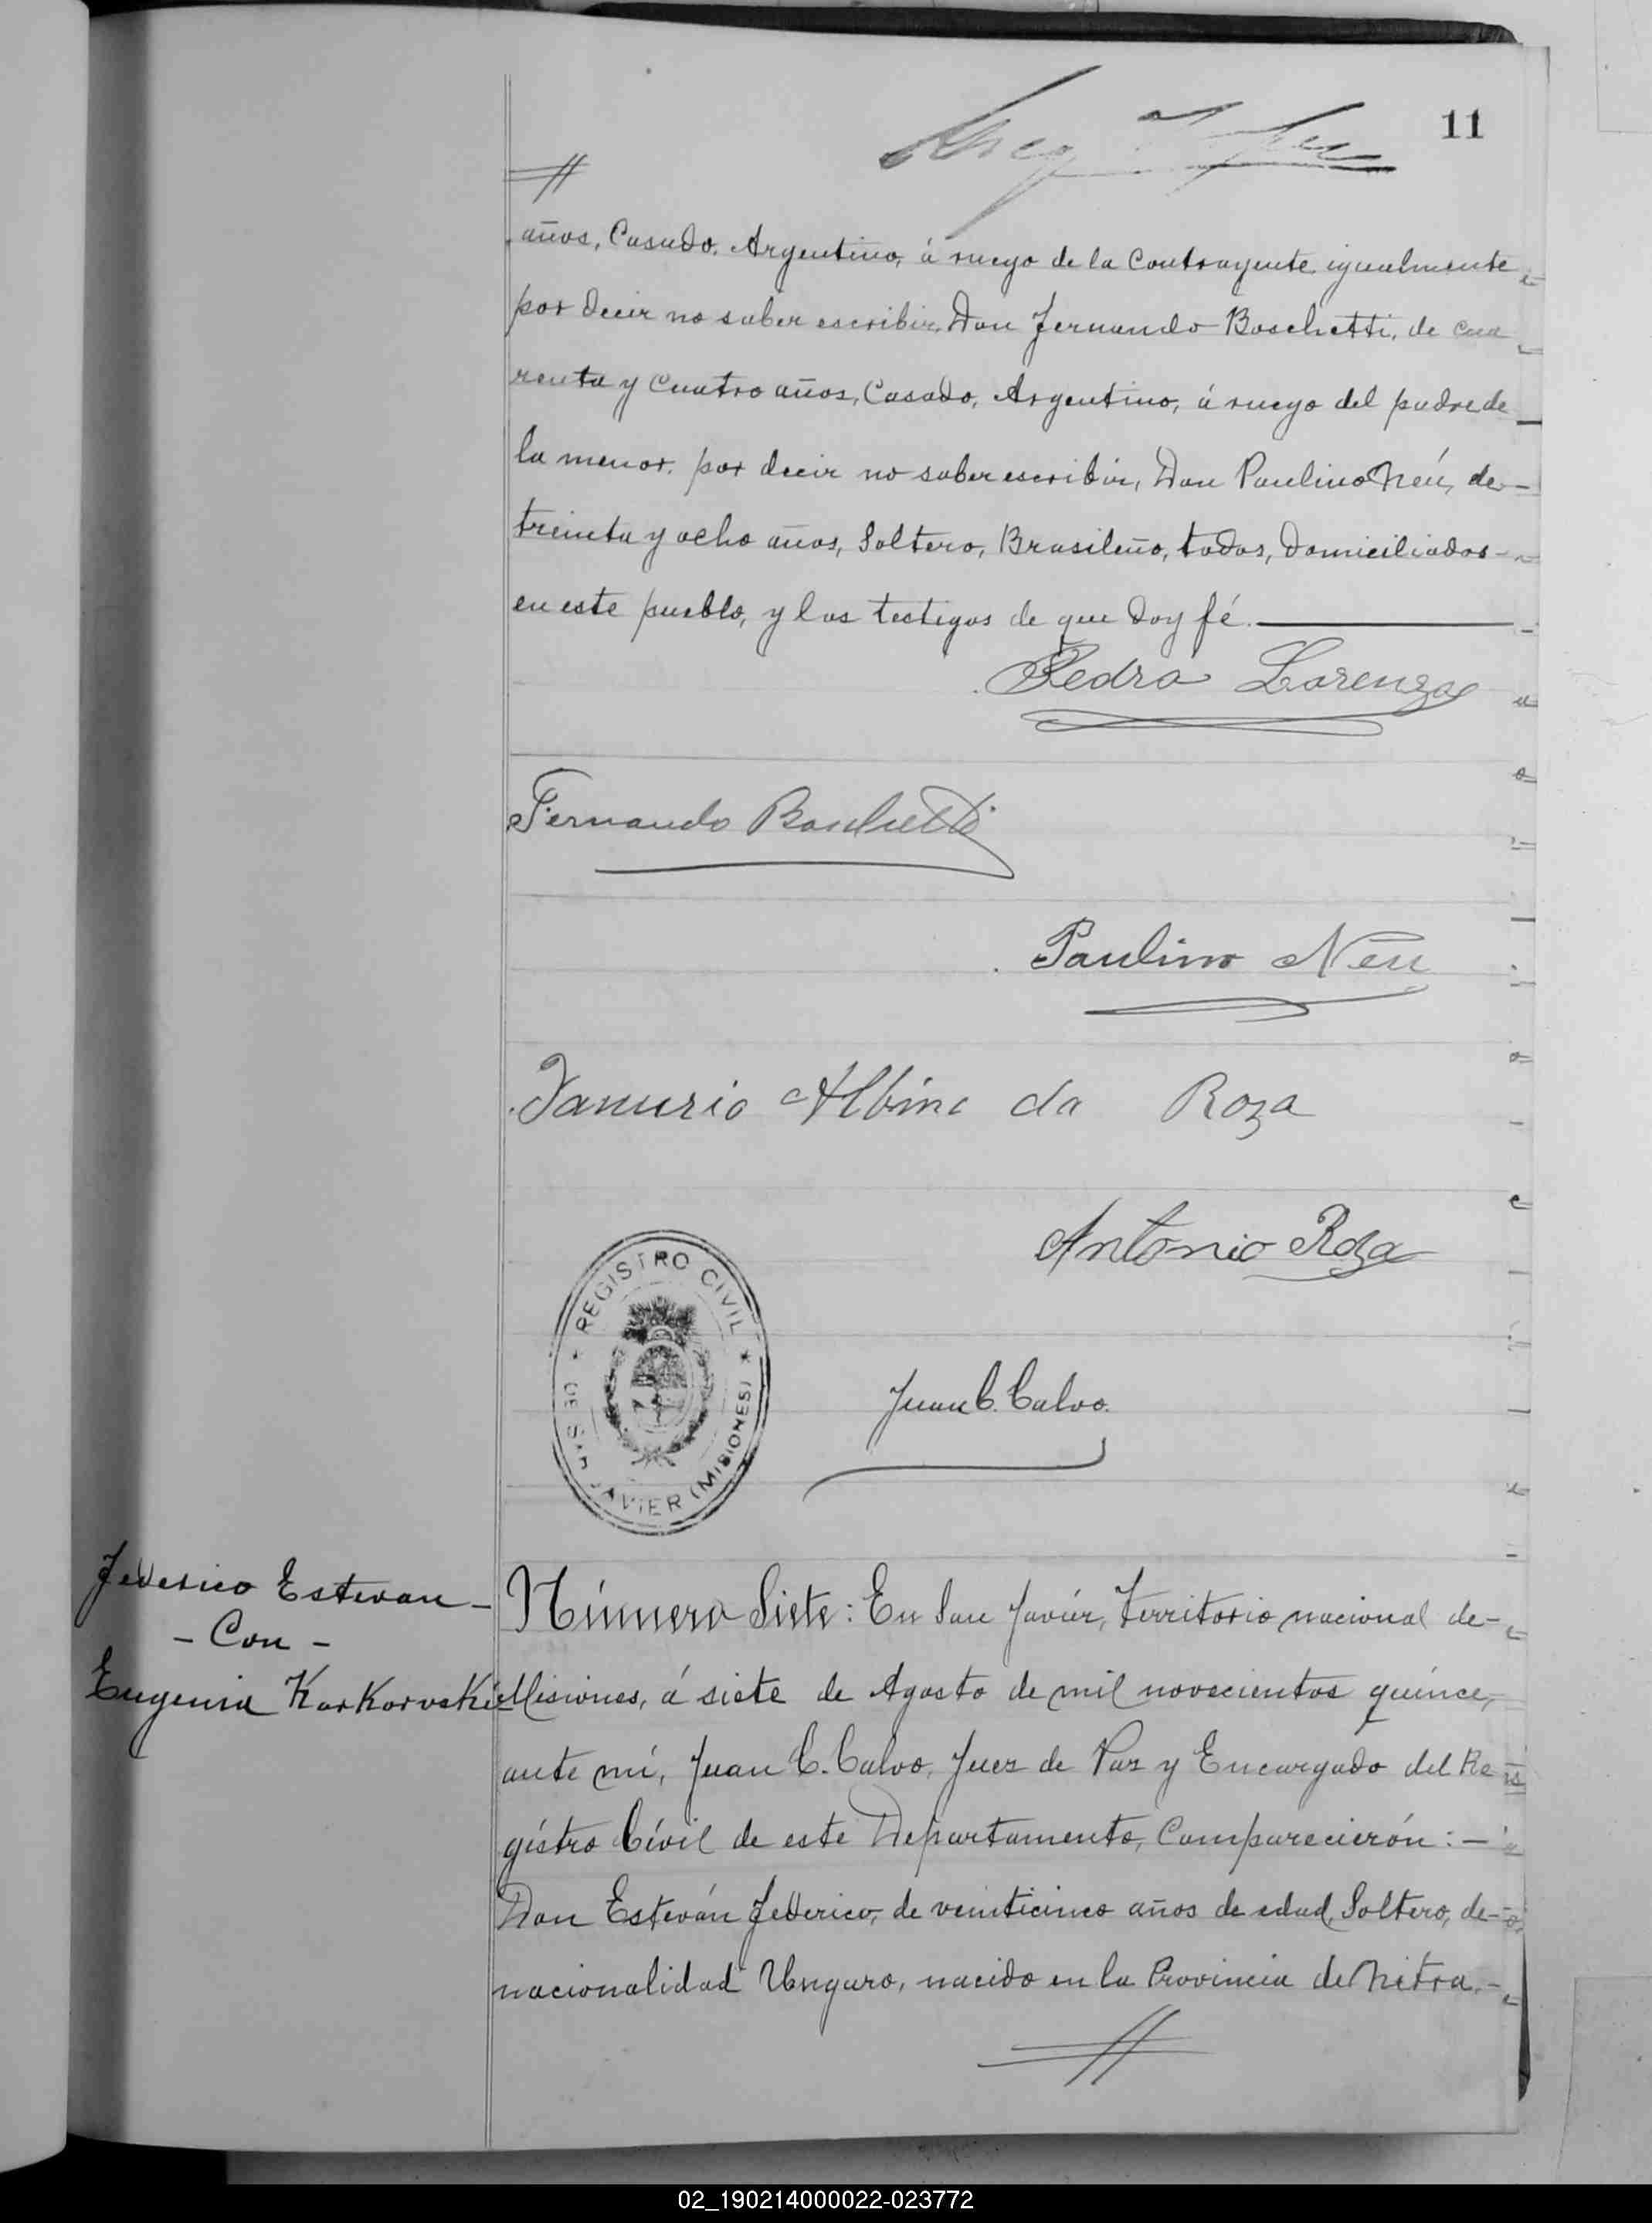 11
años, Casado, Argentino, á ruego de la Contrayente igualmente
por decir no saber escribir, Don Fernando Boschetti, de cua
renta y cuatro años, Casado, Argentino, á ruego del padre de
la menor, por decir no saber escribir, Don Paulino Néu, de-
treinta y ocho años, Soltero, Brasileño, todos, Domiciliados-
en este pueblo, y los testigos de que doy fé.
Pedro Lorenzo
Fernando Boschetti
Paulino Néu
Janurio Albino da Roza
Antonio Roza
REGISTRO CIVIL
DE SAN JAVIER (MISIONES)
Juan C. Calvo.
Federico Estevan-
- Con -
Eugenia Karkorvski
Número Siete: En San Javiér, Territorio nacional de-
Misiones, á siete de Agosto de mil novecientos quince,
ante mi, Juan C. Calvo, Juez de Paz y Encargado del Re
gistro Civil de este Departamento, Comparecierón: -
Don Esteván Federico, de veinticinco años de edad, Soltero, de-
nacionalidad Ungaro, nacido en la Provincia de Nitra.-
02_190214000022-023772